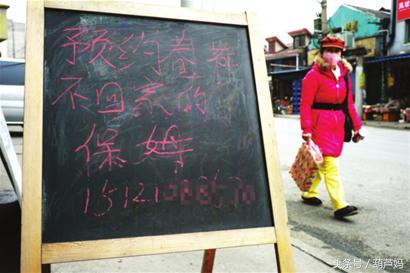 预约春节
不回家的
保姆
头条号/葫芦妈